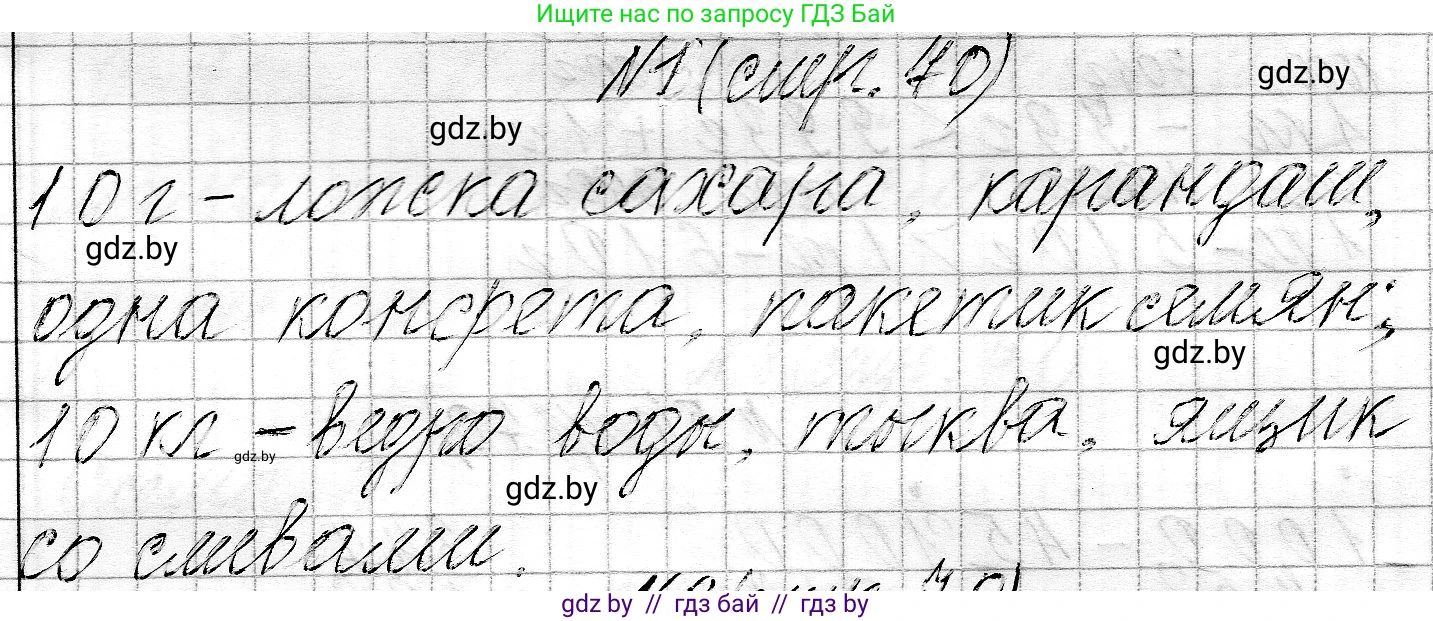 Ищите нас по запросу ГДЗ Бай
№1 (стр. 70)
gdz.by
gdz.by
10 г - ложка сахара, карандаш,
gdz.by
одна конфета, пакетик семян;
gdz.by
10 кг - ведро воды, тыква, ящик
gdz.by
gdz.by
со сливами.
№2 (стр. 70)
gdz by // гдз бай // гдз by